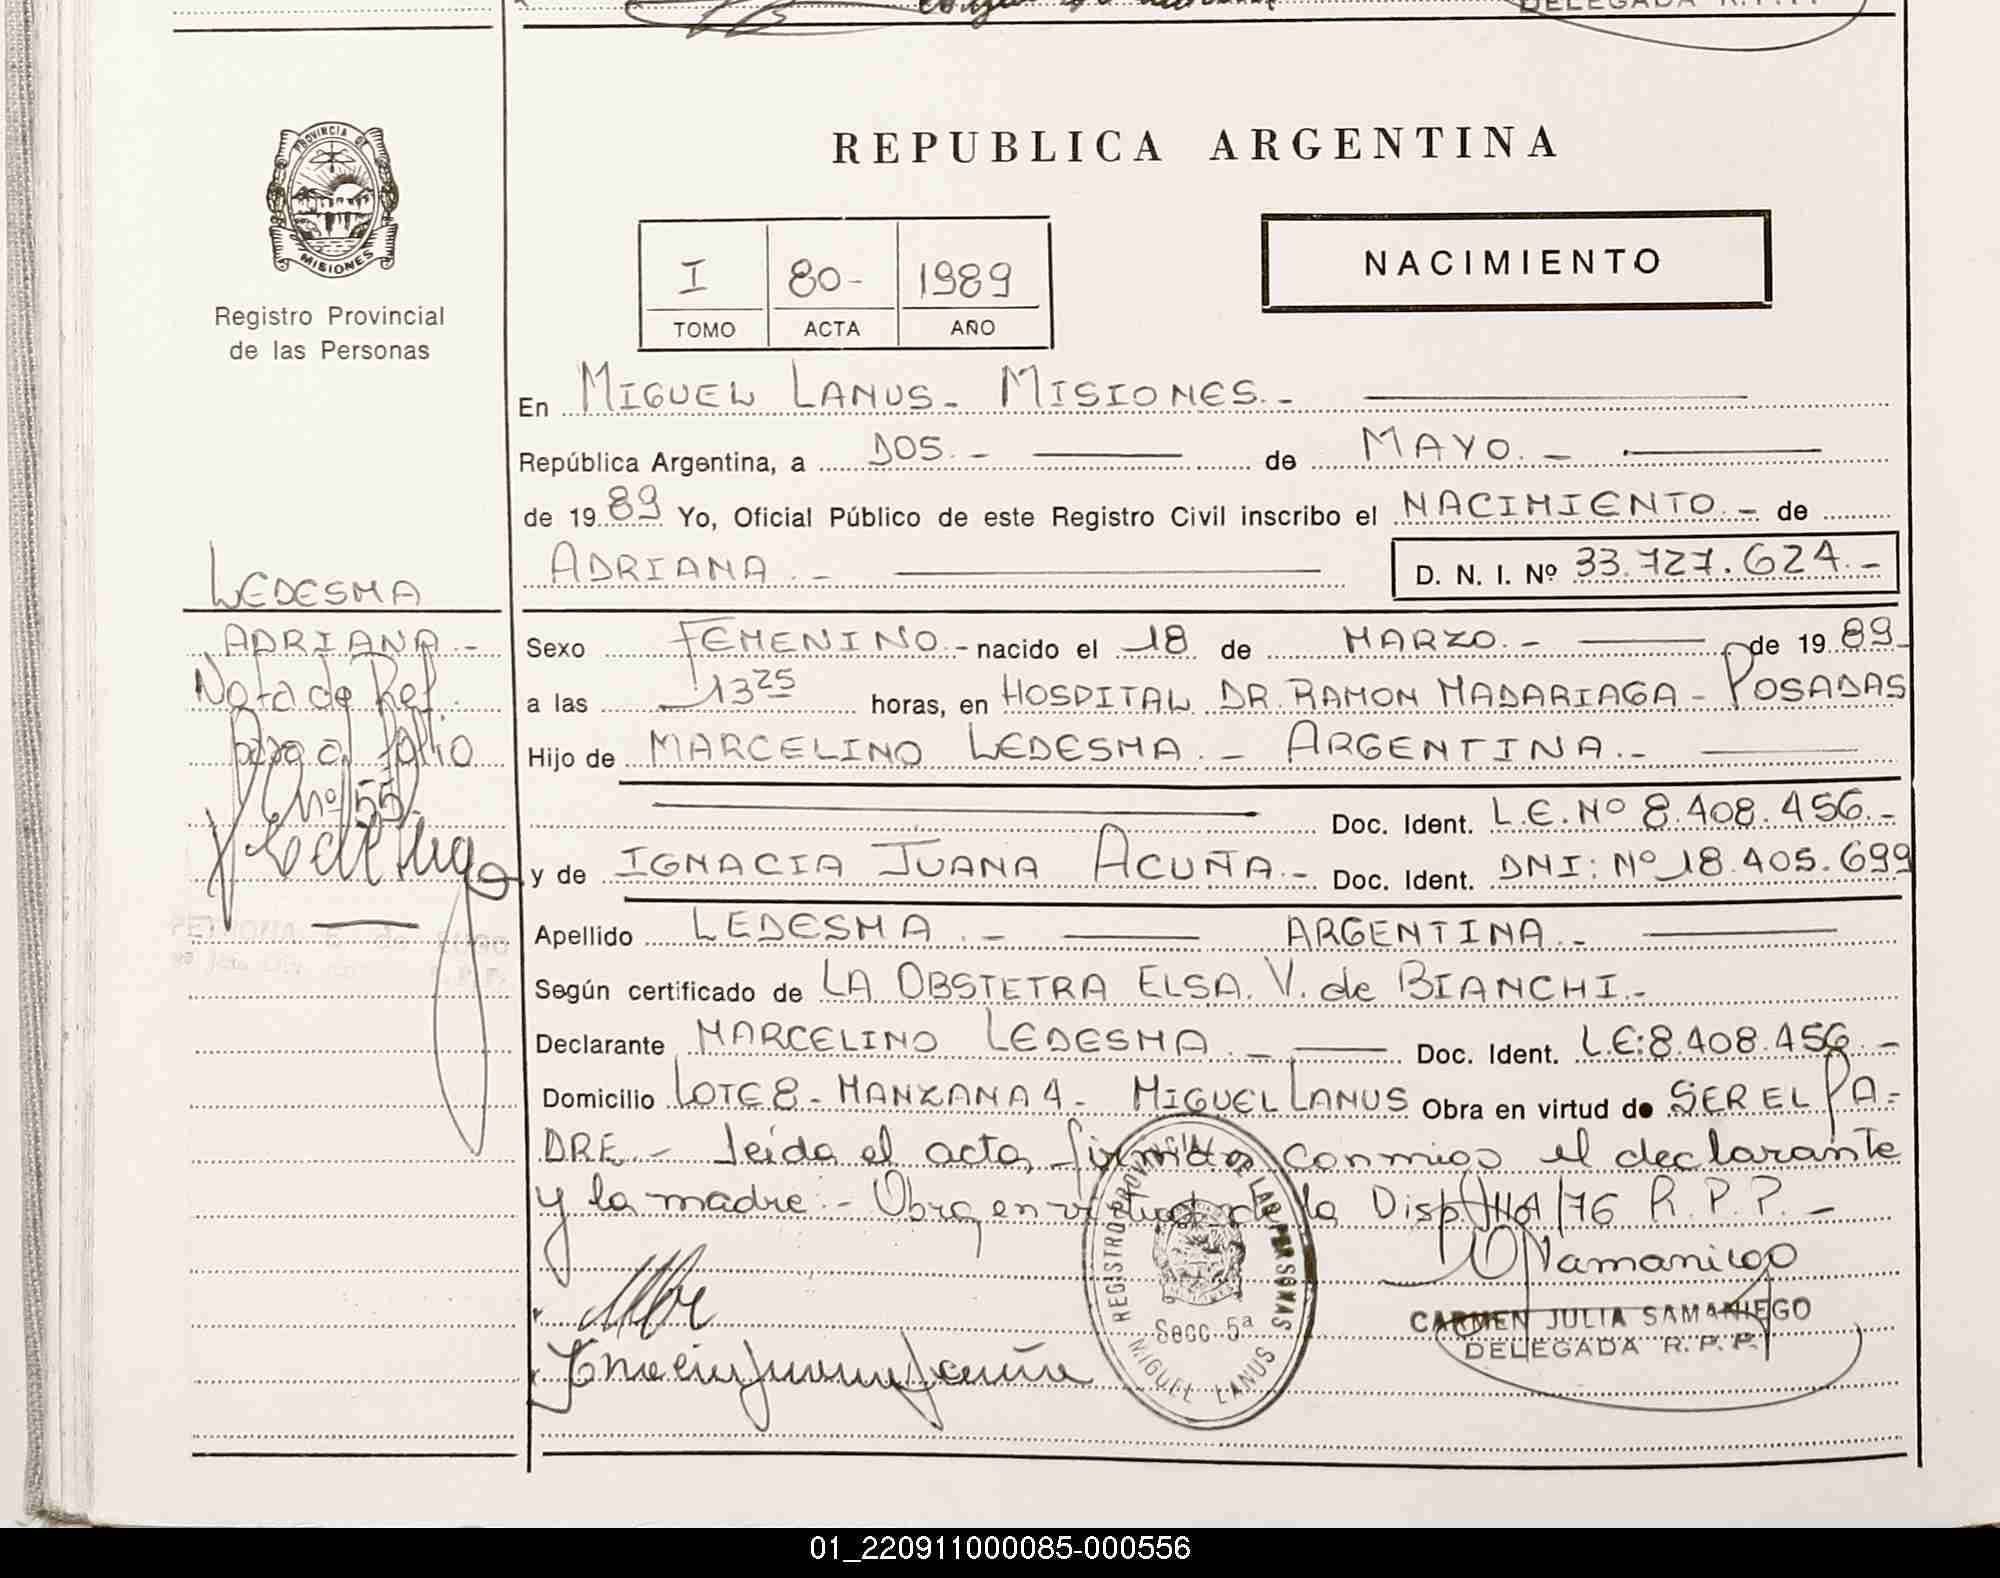 DELEGADA R.P.P.
PROVINCIA DE
MISIONES
Registro Provincial
de las Personas
REPUBLICA ARGENTINA
I 80- 1989
TOMO ACTA AÑO
NACIMIENTO
En MIGUEL LANUS - MISIONES.-
República Argentina, a DOS.- de MAYO.-
de 1989 Yo, Oficial Público de este Registro Civil inscribo el NACIMIENTO.- de
ADRIANA.- D. N. I. Nº 33.727.624.-
LEDESMA
ADRIANA.-
Nota de Ref.
pasa al folio
nº 55
Sexo FEMENINO.- nacido el 18 de MARZO.- de 1989-
a las 13 25 horas, en HOSPITAL DR. RAMON MADARIAGA - POSADAS
Hijo de MARCELINO LEDESMA.- ARGENTINA.-
Doc. Ident. L.E. Nº 8.408.456.-
y de IGNACIA JUANA ACUÑA.- Doc. Ident. DNI: Nº 18.405.699
Apellido LEDESMA.- ARGENTINA.-
Según certificado de LA OBSTETRA ELSA. V. de BIANCHI.-
Declarante MARCELINO LEDESMA.- Doc. Ident. L.E: 8.408.456.-
Domicilio LOTE 8 - MANZANA 4 - MIGUEL LANUS Obra en virtud de SER EL PA-
DRE.- leída el acta, firman conmigo el declarante
y la madre.- Obra en virtud de la Disp. /76 R.P.P.-
REGISTRO PROVINCIAL DE LAS PERSONAS
Secc. 5ª
MIGUEL LANUS
Ignacia Juana Acuña
CARMEN JULIA SAMANIEGO
DELEGADA R. P. P.
01_220911000085-000556